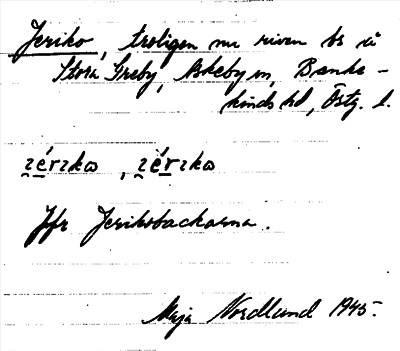 Jeriko, troligen nu riven bs å
Stora Greby, Askeby sn, Banke-
kinds hd, Östg. l.
Jfr Jeriksbackarna.
Maja Nordlund 1945.